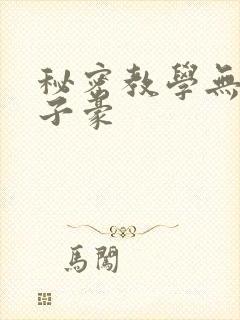 秘密教學無
子豪
馬闖